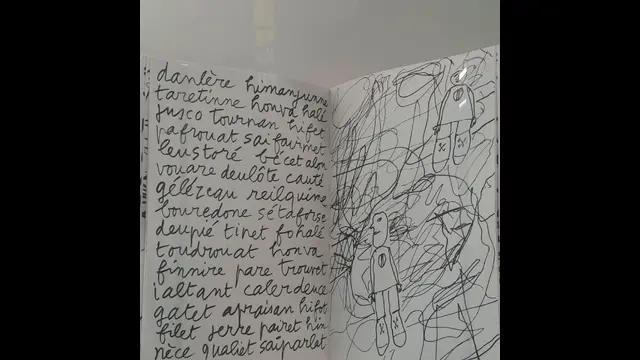 danlère himanjunne
taretinne honva halé
jusco tournan hifet
vafrouat sai faurmet
leustoré bécet alon
vouare deulôte cauté
gélézeau reilquine
bouredone sétaforse
deupié tinet fohalé
toudrouat honva
finnire pare trouvet
ialtant calerdeuce
gatet apraisan hifot
filet serre pairet hin
nèce qualiet saiparlat